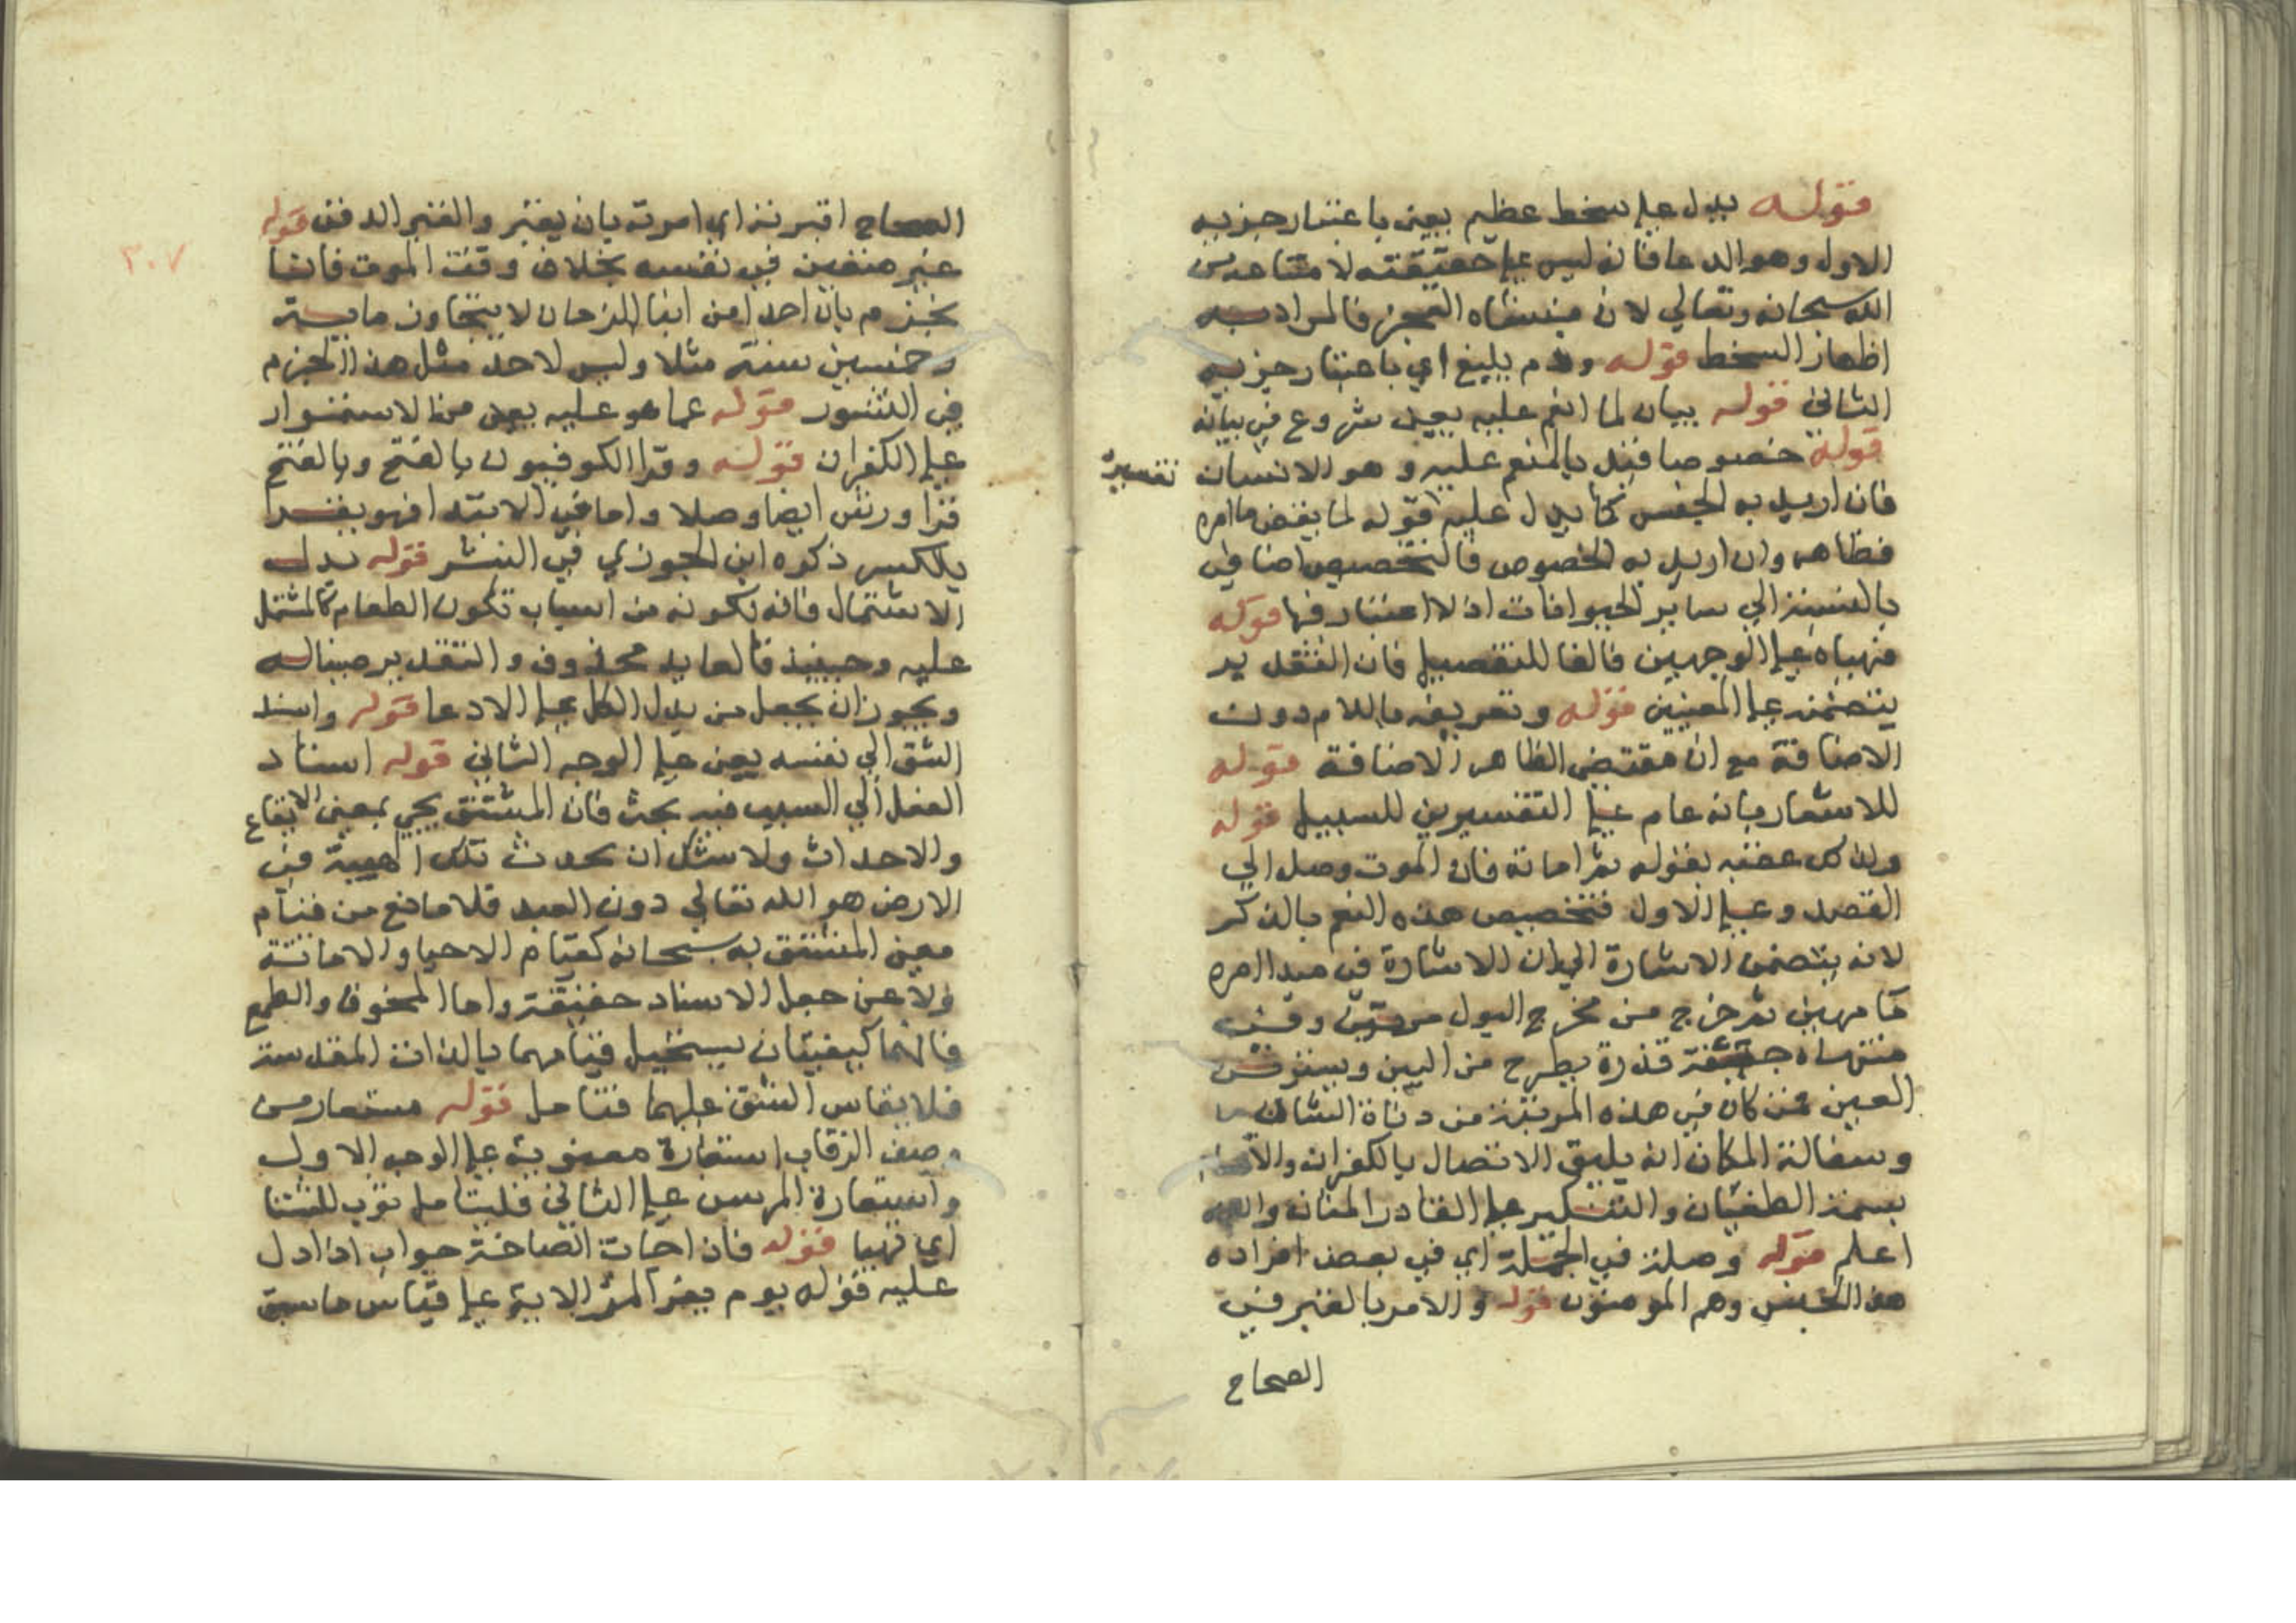 قوله يدل علي سخط عظيم يعني باعتبار جزيه
الاول وهو الدعا فانه ليس علي حقيقته لامتناعه من
الله سبحانه وتعالي لان منشاه العجز فالمراد به
اظهار السخط قوله وذم بليغ اي باعتبار جزيه
الثاني قوله بيان لما انعم عليه يعني شروع في بيانه
قوله خصوصا قيد بالمنعم عليه وهو الانسان
تفسيره
فان اريد به الجنس كما يدل عليه قوله لما يقض ما امره
فظاهر وان اريد به الخصوص فالتخصيص اضافي
بالنسبة الي ساير الحيوانات اذ لا اعتبار فها قوله
فهياه علي الوجهين فالفا للتفصيل فان التقدير
يتضمنه علي المعنيين قوله وتعريفه باللام دون
الاضافة مع ان مقتضي الظاهر الاضافة قوله
للاشعار بانه عام علي التفسيرين للسبيل قوله
ولذلك عقبه بقوله ثم اماته فان الموت وصل الي
القصد وعلي الاول فتخصيص هذه النعم بالذكر
لانه يتضمن الاشارة الي ان الاشارة في مبدا امره
ما مهين ثم خرج من مخرج البول مرتين وفي
منتهاه جيفة قذرة يطرح من البين ويستزفر
العين فمن كان في هذه المرتبة من دناة الشان
وسفالة المكان انه يليق الاتصال بالكفران
بسمة الطغيان والتكبر علي القادر المنان والله
اعلم قوله وصلة في الجملة اي في بعض افراده
هذا الجنس وهم المومنون قوله والامر بالقبر في
الصحاح
الصحاح اقبرته اي امرته بان يقبر والقبر الدفن قوله
٣٠٧
غير متعين في نفسه بخلاف وقت الموت فاننا
نجزم بان احدا من ابنا الزمان لا يتجاوز ماية
وخمسين سنة مثلا وليس لاحد مثل هذا الجزم
في النشور قوله عما هو عليه يعني من الاستمرار
علي الكفران قوله وقرا الكوفيون بالفتح وبالفتح
قرا ورش ايضا وصلا واما في الابتدا فهو يقرا
بالكسر ذكره ابن الجوزي في النشر قوله بدل
الاشتمال فانه بكونه من اسباب تكون الطعام كالمشتمل
عليه وحينيذ فالعايد محذوف والتقدير صببنا له
ويجوز ان يجعل من بدل الكل علي الادعا قوله واسند
الشق الي نفسه يعني علي الوجه الثاني قوله اسناد
الفعل الي السبب فيه بحث فان المشتق يجي بمعني الايقاع
والاحداث ولا شك ان محدث تلك الهيية في
الارض هو الله تعالي دون العبد فلا مانع من قيام
معني المشتق به سبحانه كقيام الاحيا والاماتة
ولا عن جعل الاسناد حقيقة واما الخوف والطمع
فانهما كيفيتان يستحيل قيامهما بالذات المقدسة
فلا يقاس الشق عليهما فتامل قوله مستعار من
وصف الرقاب استعارة معنوية علي الوجه الاول
واستعارة المرسن علي الثاني فليتامل توب للشتا
اي تهيا قوله فان احات الصاخة جواب اذا دل
عليه قوله يوم يفر المر الاية علي قياس ما سبق